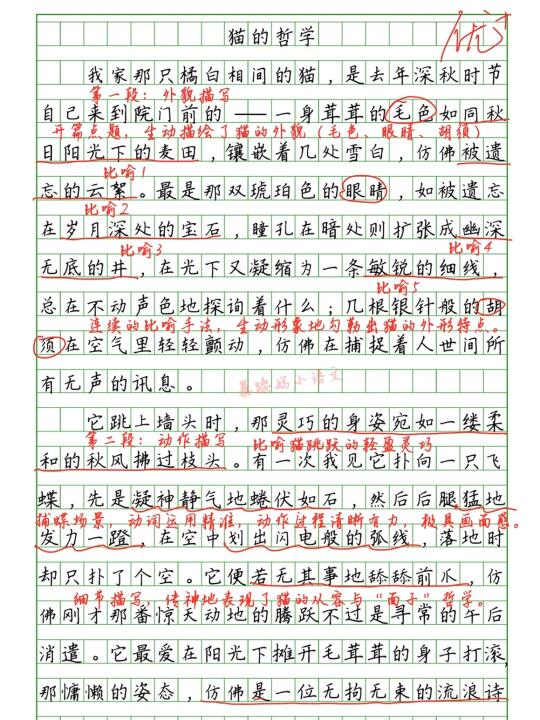 猫的哲学
优+
我家那只橘白相间的猫，是去年深秋时节
第一段：外貌描写
自己来到院门前的——一身茸茸的毛色如同秋
开篇点题，生动描绘了猫的外貌（毛色、眼睛、胡须）
日阳光下的麦田，镶嵌着几处雪白，仿佛被遗
比喻1
忘的云絮。最是那双琥珀色的眼睛，如被遗忘
比喻2
在岁月深处的宝石，瞳孔在暗处则扩张成幽深
比喻3 比喻4
无底的井，在光下又凝缩为一条敏锐的细线，
比喻5
总在不动声色地探询着什么；几根银针般的胡
连续的比喻手法，生动形象地勾勒出猫的外形特点。
须在空气里轻轻颤动，仿佛在捕捉着人世间所
有无声的讯息。
暴躁妈小语文
它跳上墙头时，那灵巧的身姿宛如一缕柔
第二段：动作描写 比喻猫跳跃的轻盈灵巧
和的秋风拂过枝头。有一次我见它扑向一只飞
蝶，先是凝神静气地蜷伏如石，然后后腿猛地
捕蝶场景，动词运用精准，动作过程清晰有力，极具画面感。
发力一蹬，在空中划出闪电般的弧线，落地时
却只扑了个空。它便若无其事地舔舔前爪，仿
细节描写，传神地表现了猫的从容与“面子”哲学。
佛刚才那番惊天动地的腾跃不过是寻常的午后
消遣。它最爱在阳光下摊开毛茸茸的身子打滚，
那慵懒的姿态，仿佛是一位无拘无束的流浪诗